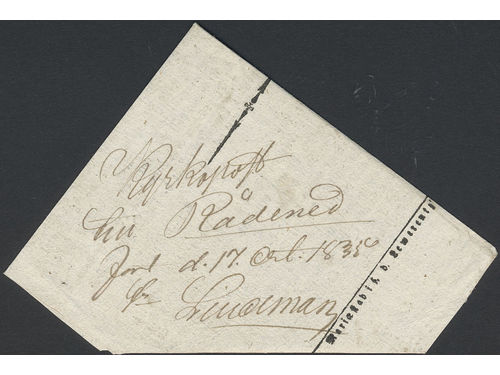 Kyrkopost
till Rådened
d. 17. Oct. 1835
Lindeman
Mariestad i